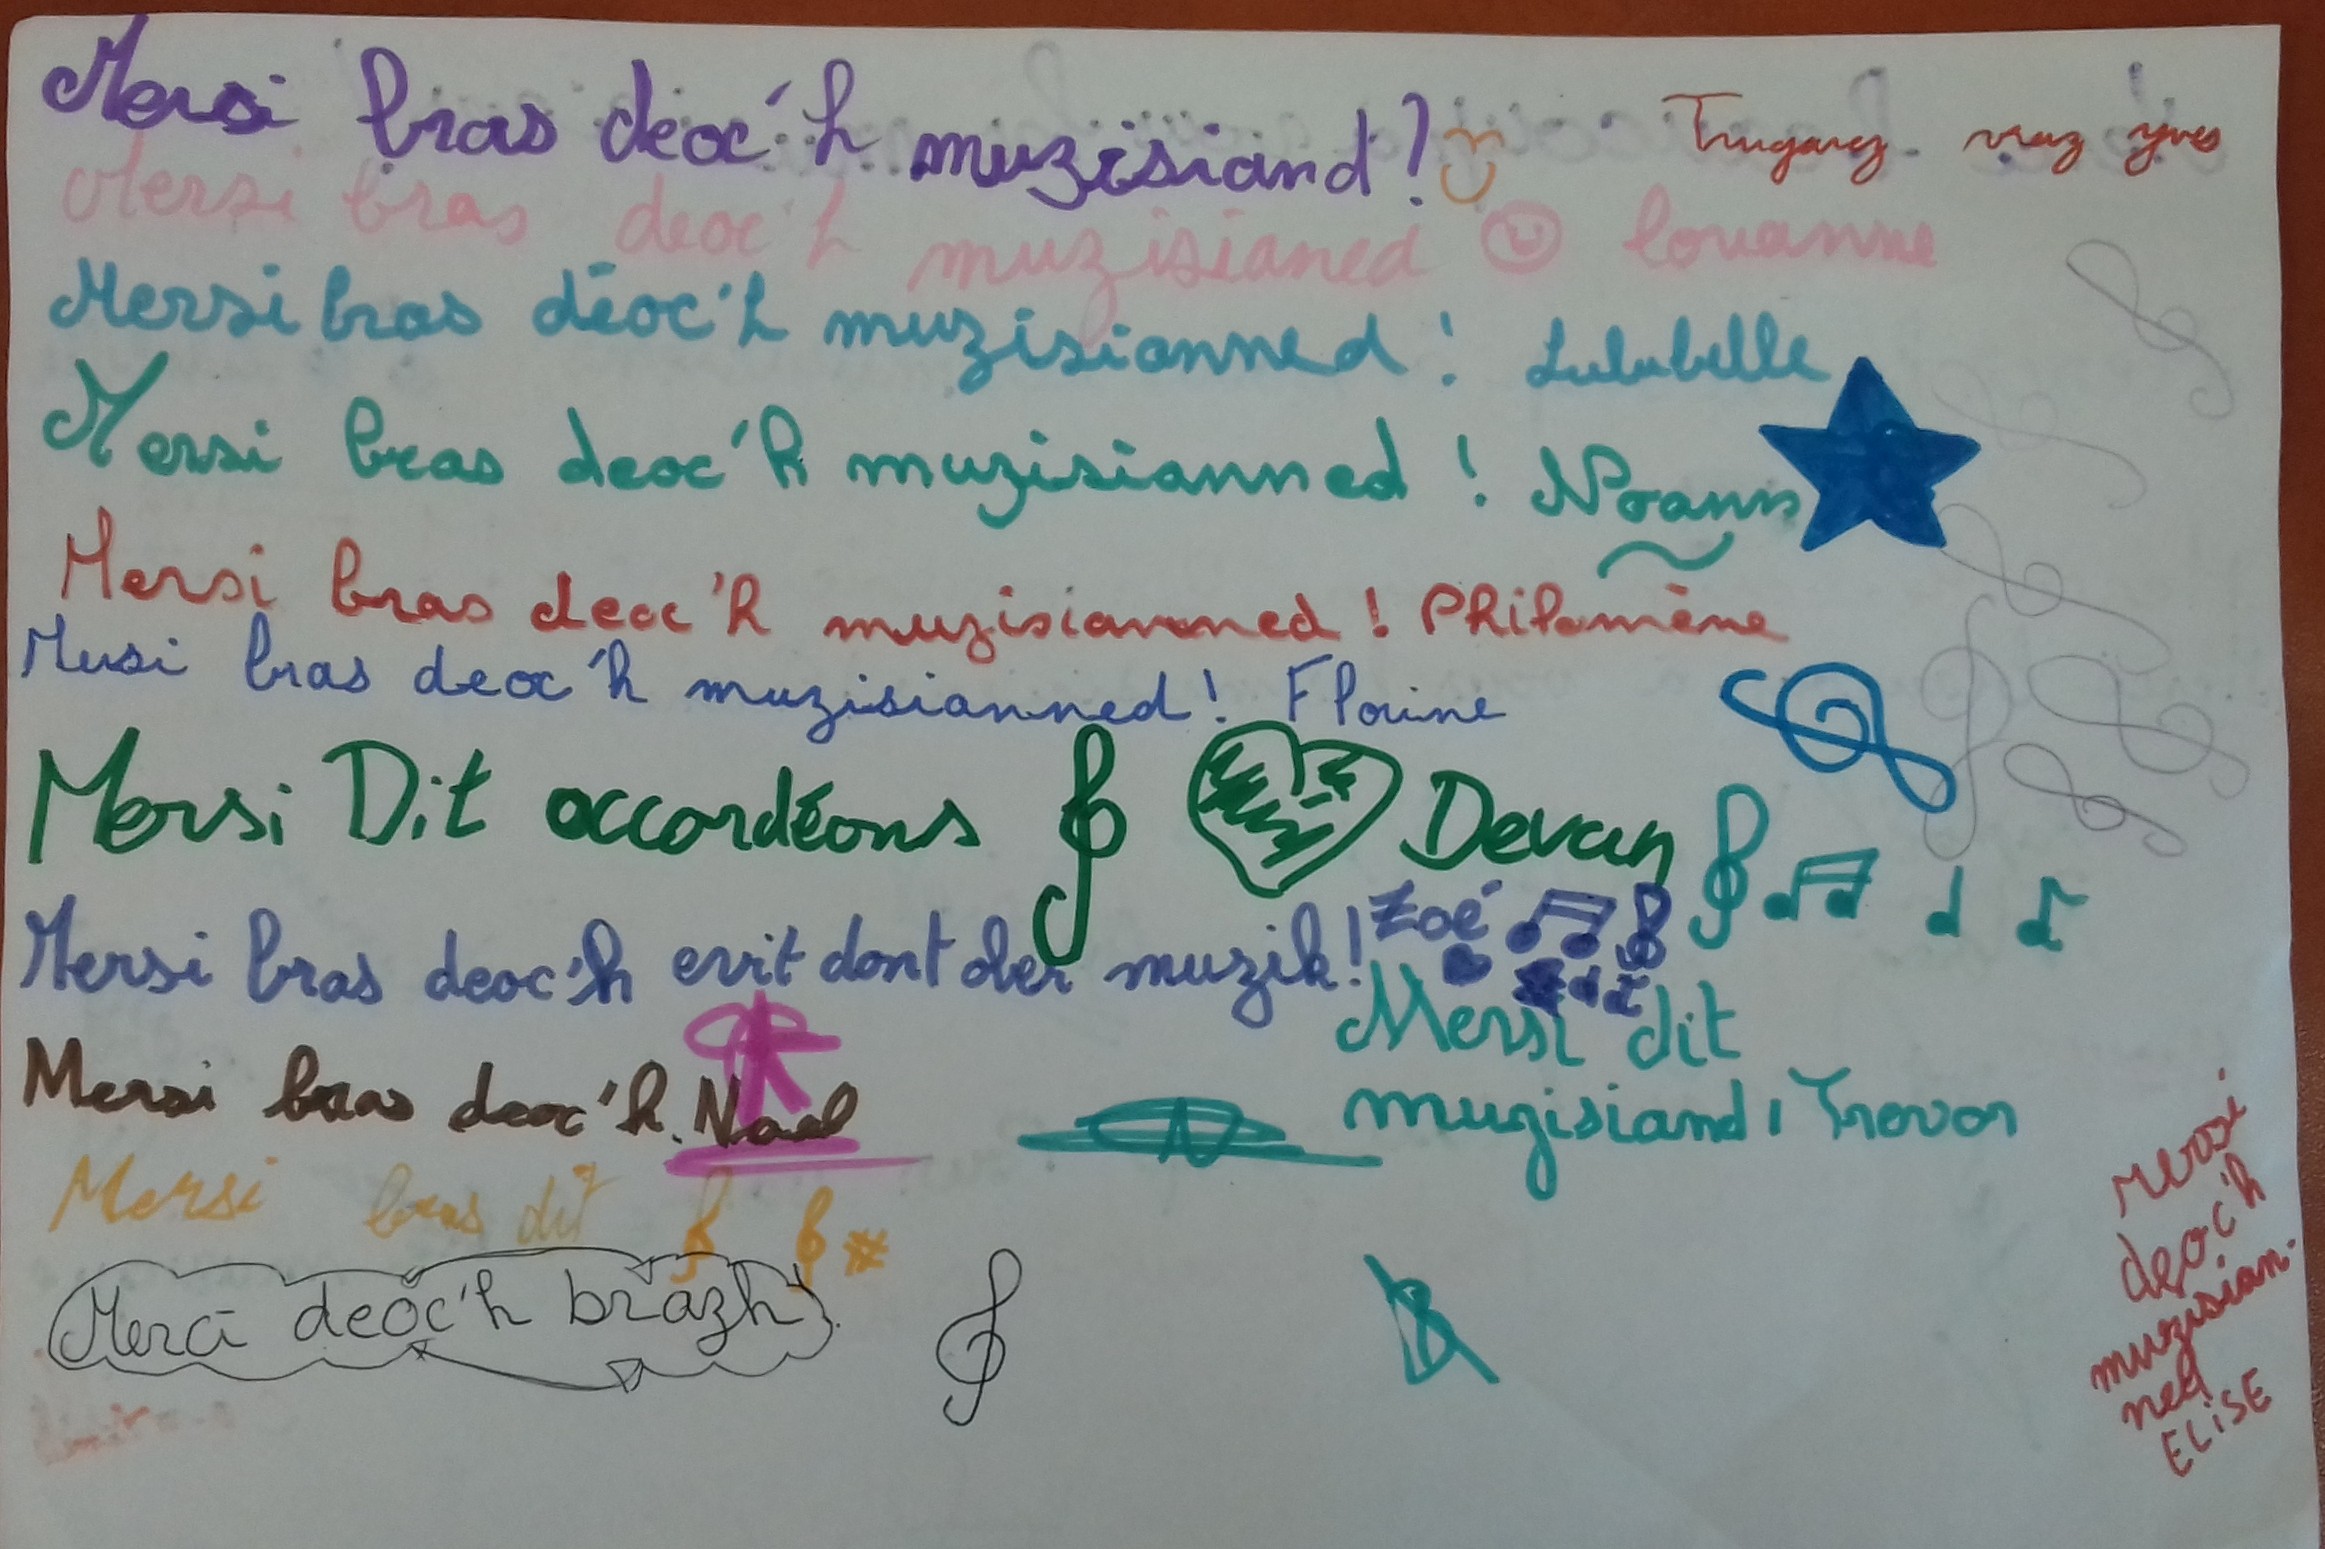 Mersi bras deoc'h muzisiand !
Trugarez vraz yves
Mersi bras deoc'h muzisianed louanne
Mersi bras déoc'h muzisianned ! Lulubelle
Mersi bras deoc'h muzisianned ! Noann
Mersi bras deoc'h muzisianned ! Philomène
Mersi bras deoc'h muzisianned ! Florine
Mersi Dit accordéons Devan
Mersi bras deoc'h evit dont ober muzik ! Zoé
Mersi dit
muzisiand ! Trevor
Mersi bras deoc'h. Nael
Mersi bras dit
Merci deoc'h brazh
mersi
deoc'h
muzisian-
ned
ELiSE